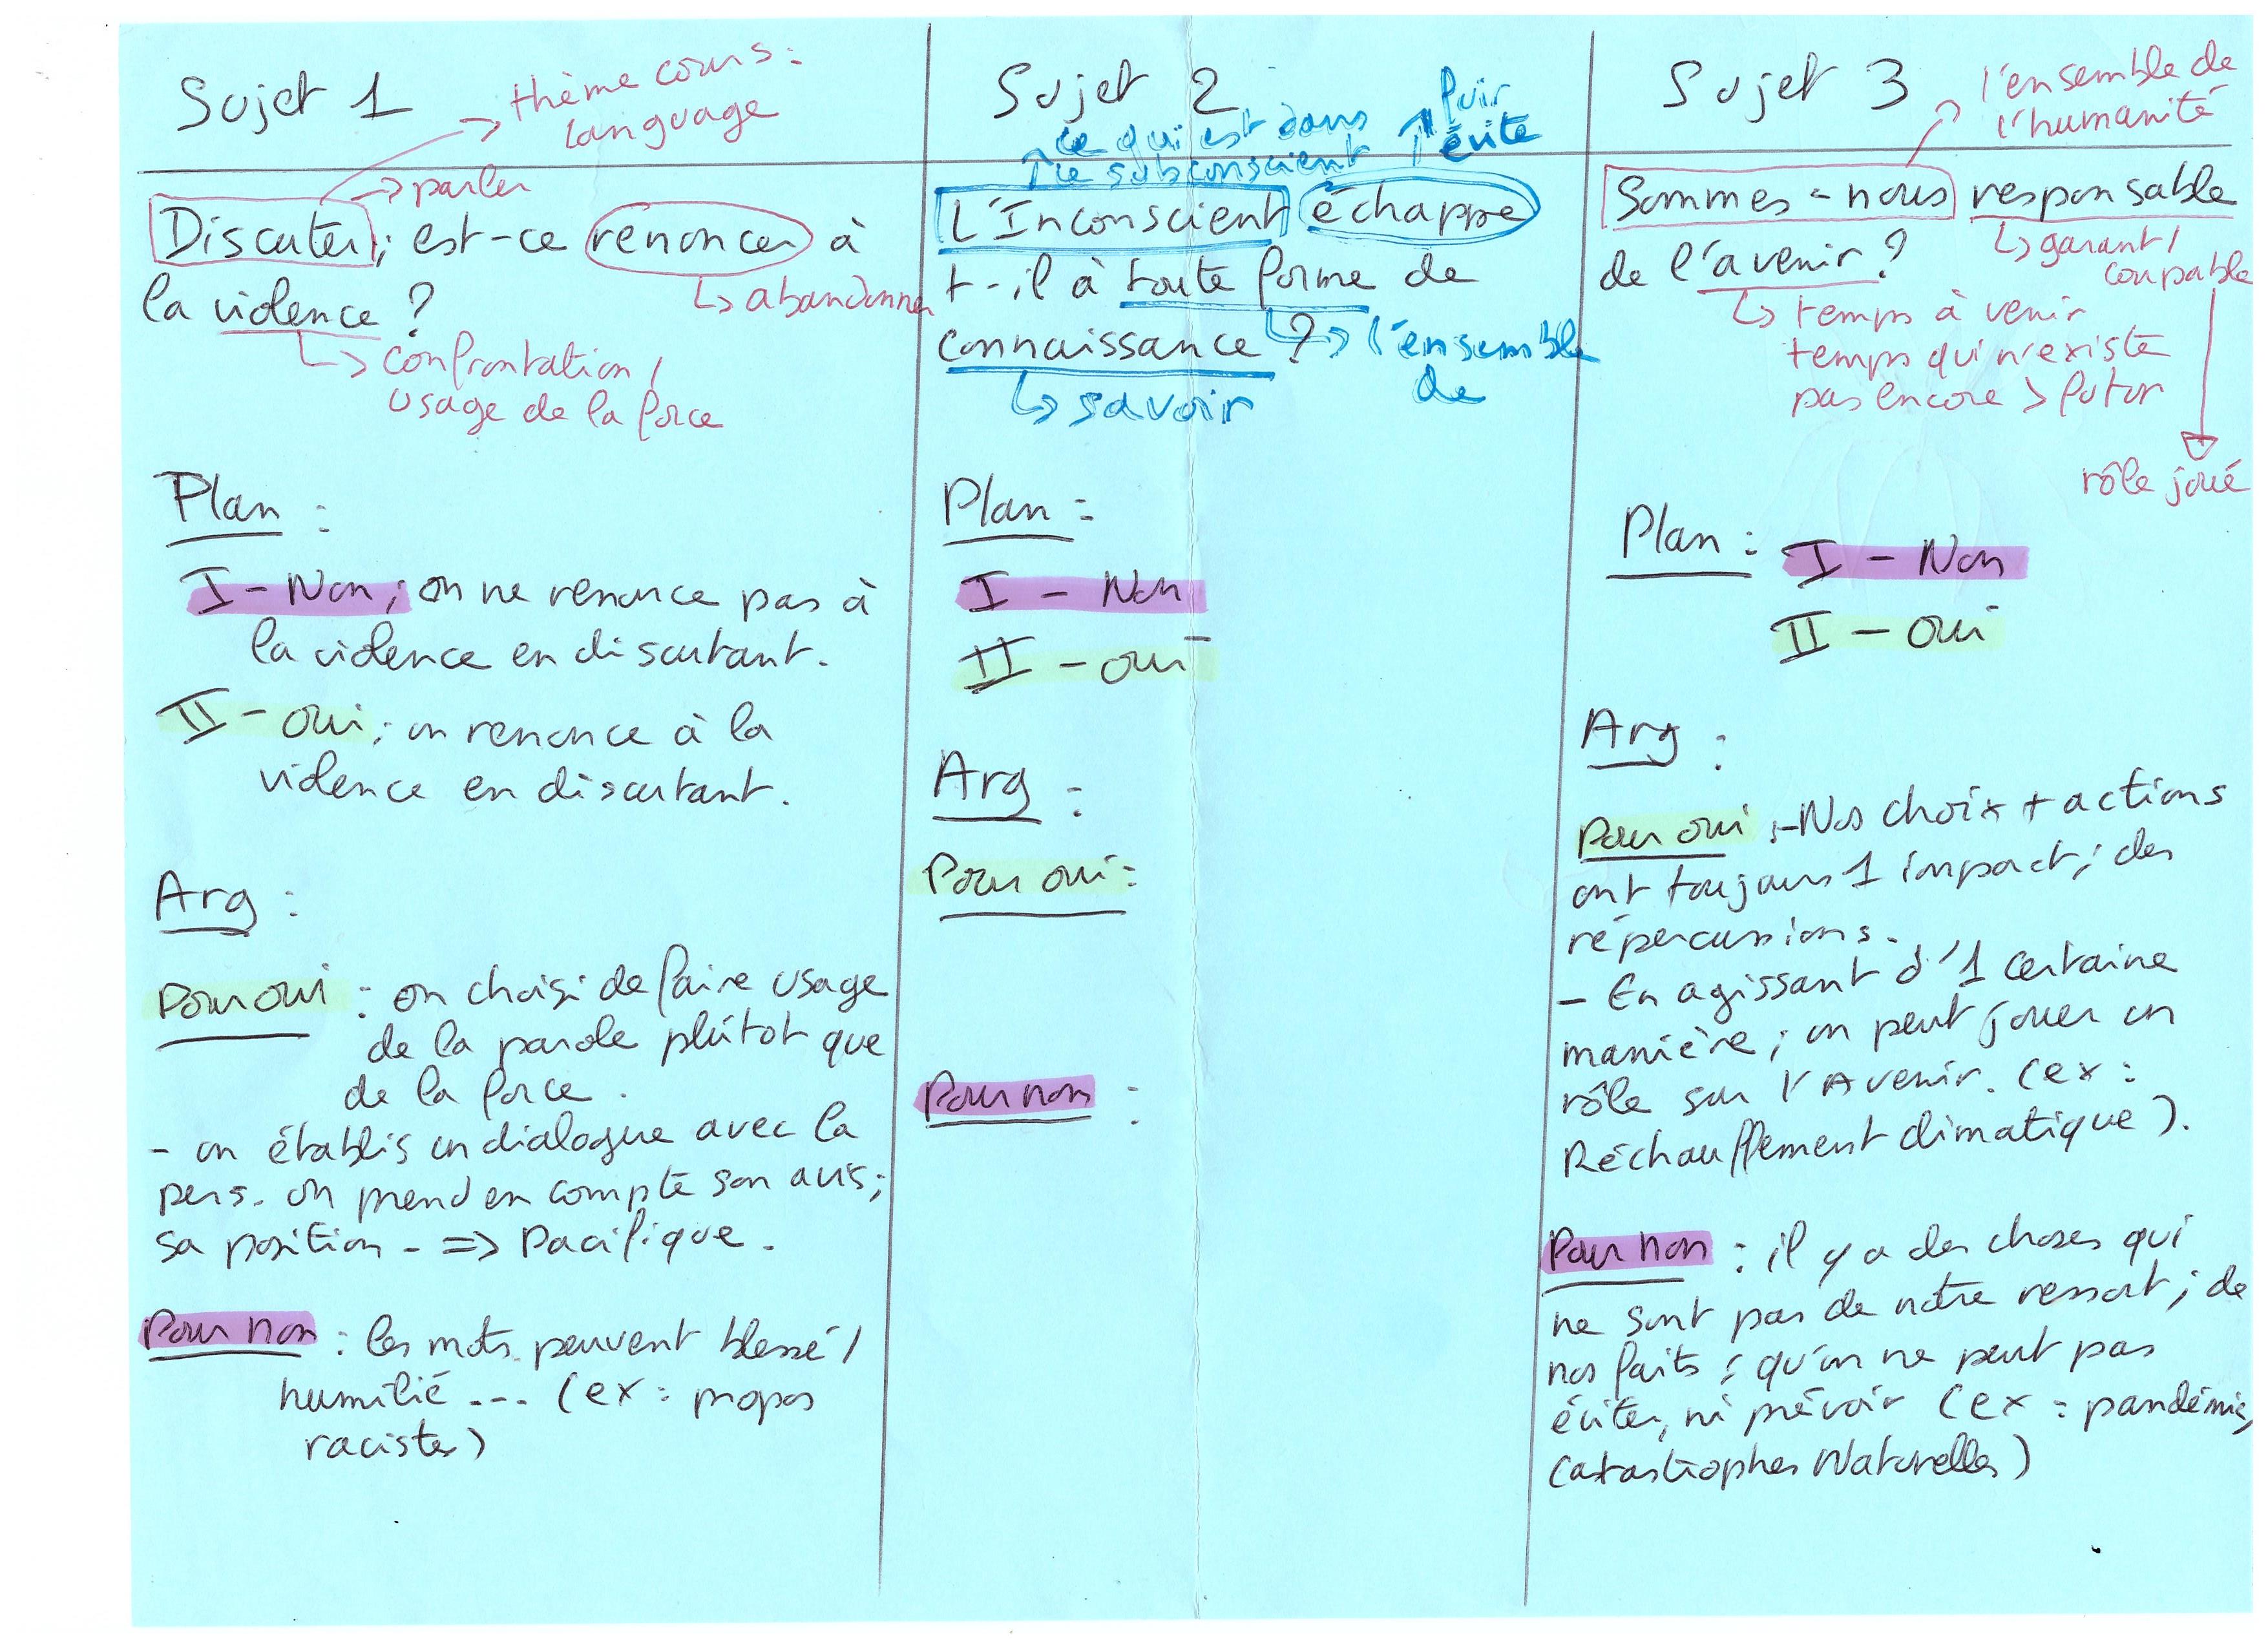 Sujet 1
thème cours :
language
→ parler
Discuter ; est-ce renoncer à
↳ abandonner
la violence ?
↳ confrontation /
usage de la force
Plan :
I - Non ; on ne renonce pas à
la violence en discutant.
II - oui ; on renonce à la
violence en discutant.
Arg :
Pour oui : on choisi de faire usage
de la parole plûtot que
de la force.
- on établis un dialogue avec la
pers. on prend en compte son avis ;
sa position - => Pacifique.
Pour non : les mots peuvent blessé /
humilié ... (ex : propos
racistes)
Sujet 2
ce qui est dans
le subconscient
fuir
évite
L'Inconscient échappe
t-il à toute forme de
connaissance ?
↳ l'ensemble
de
↳ savoir
Plan :
I - Non
II - oui
Arg :
Pour oui :
Pour non :
Sujet 3
l'ensemble de
l'humanité
Sommes-nous responsable
↳ garant /
coupable
rôle joué
de l'avenir ?
↳ temps à venir
temps qui n'existe
pas encore > futur
Plan : I - Non
II - oui
Arg :
Pour oui : - Nos choix + actions
ont toujours 1 impact ; des
répercussions.
- En agissant d'1 certaine
manière ; on peut jouer un
rôle sur l'Avenir. (ex :
Réchauffement climatique).
Pour non : il y a des choses qui
ne sont pas de notre ressort ; de
nos faits ; qu'on ne peut pas
éviter, ni prévoir (ex : pandémie,
Catastrophes Naturelles)